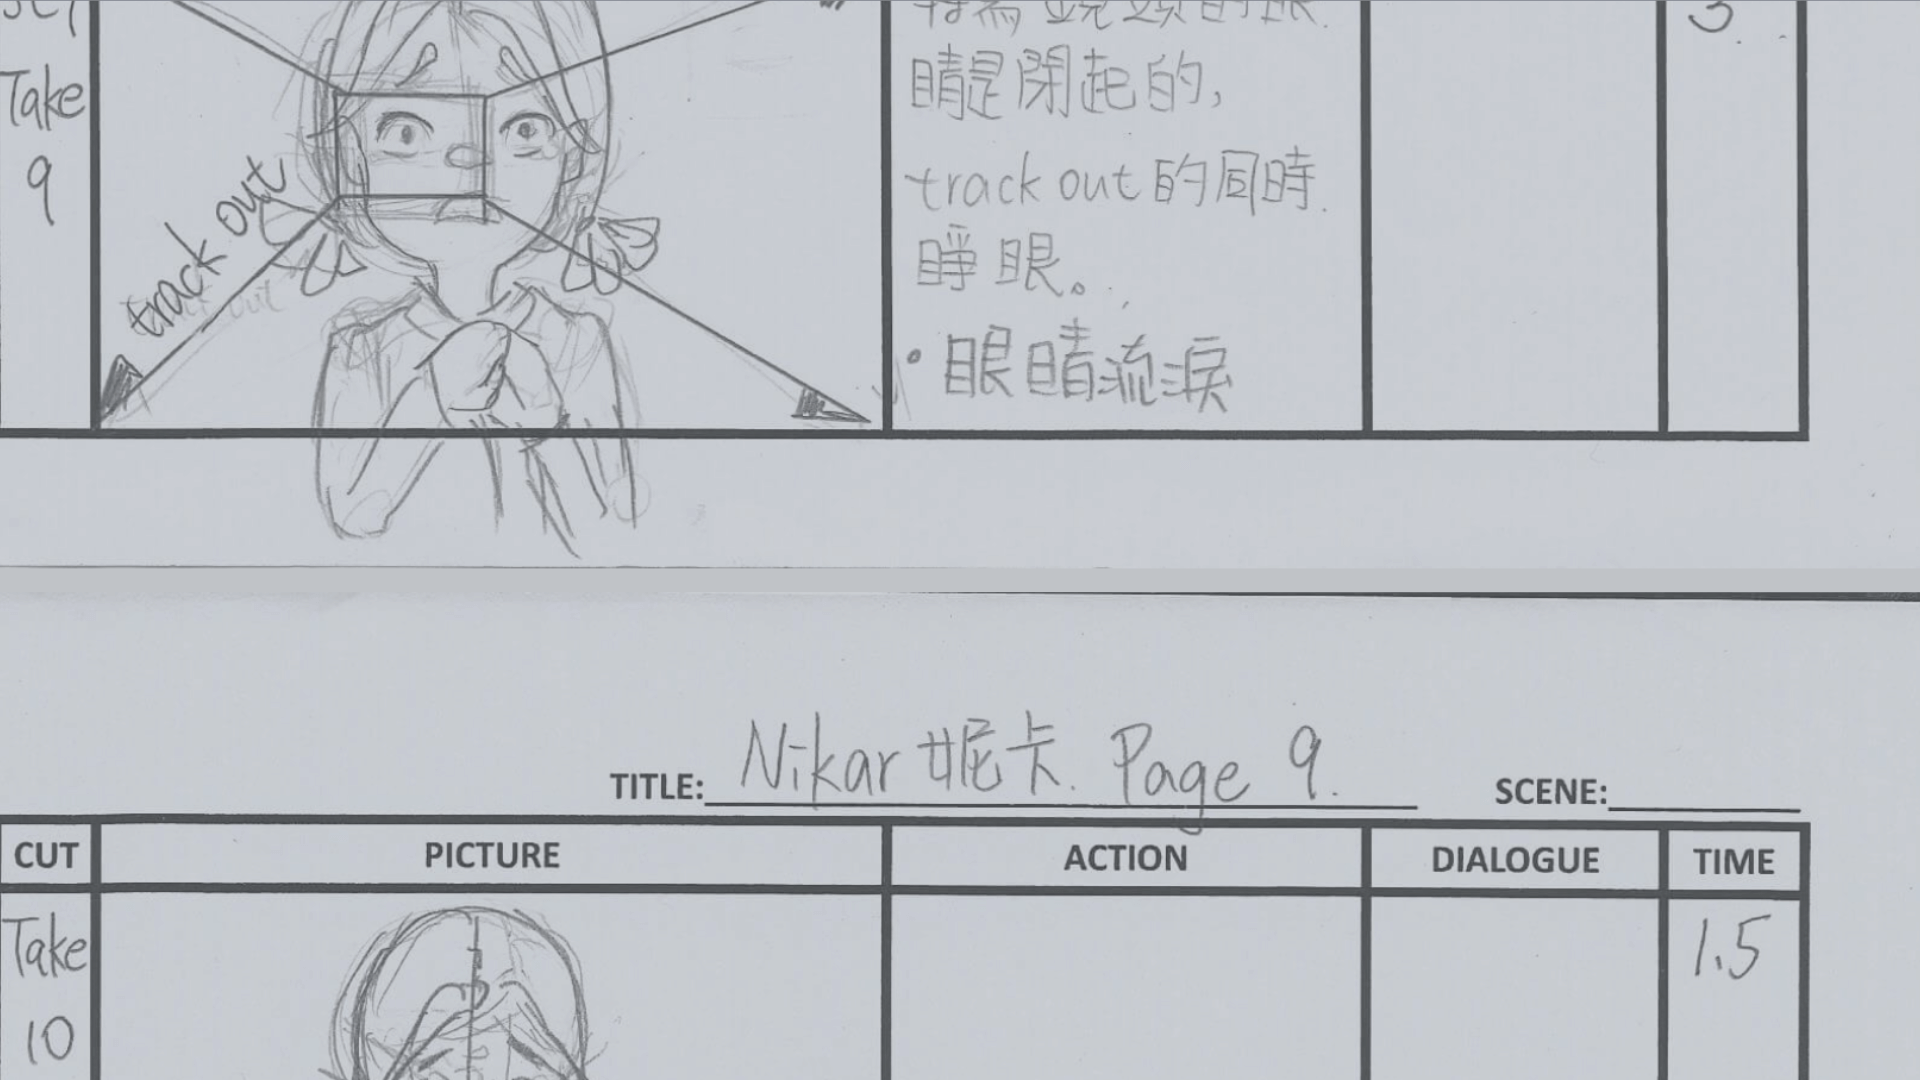 Take
9
track out
3
睛是閉起的,
track out 的同時
睜眼。
•眼睛流淚
TITLE: Nikar 妮卡. Page 9.
SCENE:
CUT
PICTURE
ACTION
DIALOGUE
TIME
Take
10
1.5